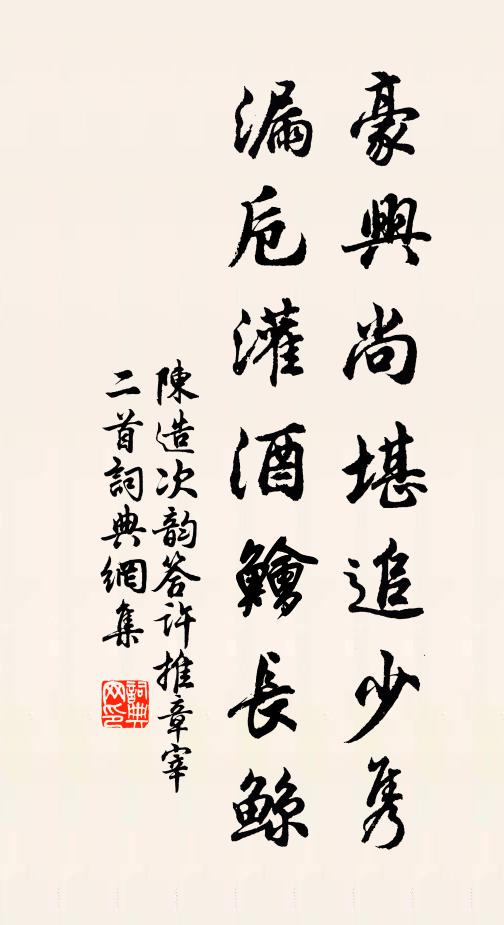 豪興尚堪追少雋
漏卮灌酒鱠長鯨
陳造次韵答許推章宰
二首詞典網集
詞典網印